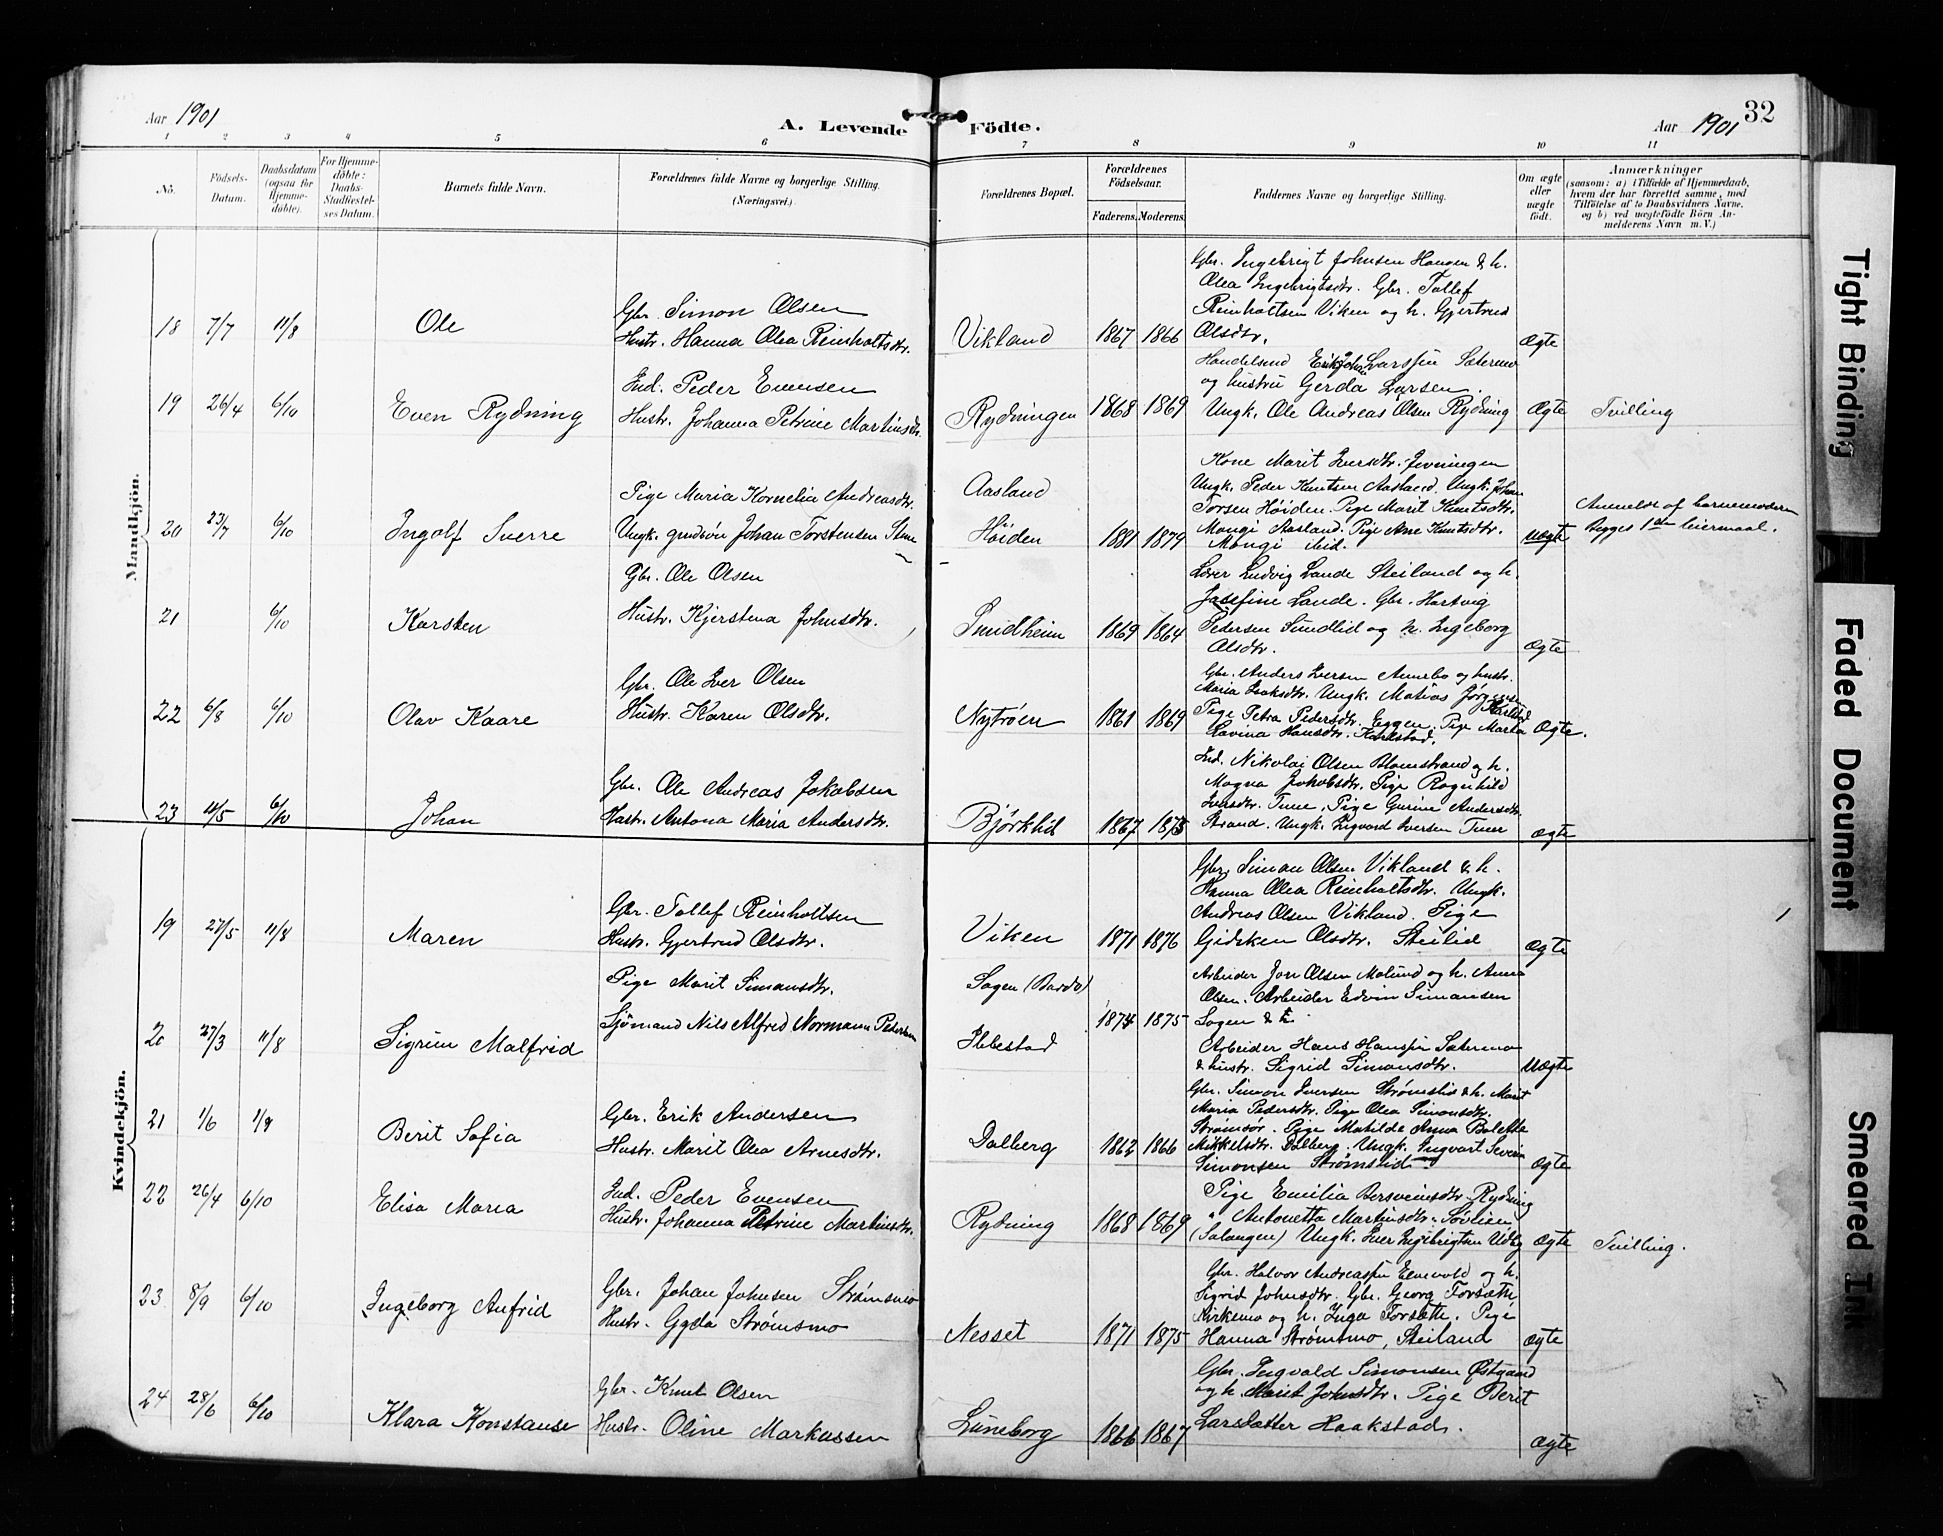 Aar 1901
A. Levende Födte.
Aar 1901
32
1 2 3 4 5 6 7 8 9 10 11
No.
Födsels-Datum.
Daabsdatum (ogsaa för Hjemme-döbte).
For Hjemme-döbte: Daabs-Stadfestel-ses Datum.
Barnets fulde Navn.
Forældrenes fulde Navne og borgerlige Stilling. (Næringsvei.)
Forældrenes Bopæl.
Forældrenes Födselsaar.
Faderens. Moderens.
Faddernes Navne og borgerlige Stilling.
Om ægte eller uægte födt.
Anmærkninger
(saasom: a) i Tilfælde af Hjemmedaab, hvem der har forrettet samme, med Tilföielse af to Daabsvidners Navne. og b) ved uægtefödte Börn An-melderens Navn m. V.)
Mandkjön.
18 7/7 11/8 Ole
Gbr. Simon Olsen
Hustr. Hanna Olea Reinholtsdtr.
Vikland 1867 1866
Gbr. Ingebrigt Johnsen Hansen & h.
Olea Ingebrigtsdtr. Gbr. Tollef
Reinholtsen Viken og h. Gjertrud
Olsdtr.
ægte
19 26/4 6/10 Even Rydning
Ind. Peder Evensen
Hustr. Johanna Petrine Martinsdtr.
Rydningen 1868 1869
Handelsmd Erik Johan Larssen Sætermo
og hustru Gerda Larsen.
Ungk. Ole Andreas Olsen Rydning
Ægte
Tvilling
20 23/7 6/10 Ingolf Sverre
Pige Maria Kornelia Andreasdtr.
Ungk. grndson Johan Torstensen
Aasland
Höiden 1881 1879
Kone Marit Iversdtr.
Ungk. Peder Knutsen Aasland. Ungk. Johan
Torsen Höiden. Pige Marit Knutsdtr.
Mongi Aasland. Pige Ane Knutsdtr.
Mongi ibid.
uægte
Anmeldt af barnemoderen
Begges 1ste leiermaal.
21 6/10 Karsten
Gbr. Ole Olsen
Hustr. Kjerstena Johnsdtr.
Sundheim 1869 1864
Lærer Ludvig Lande Steiland og h.
Josefine Lande. Gbr. Hartvig
Pedersen Sundlid og h. Ingeborg
Olsdtr.
ægte
22 6/8 6/10 Olav Kaare
Gbr. Ole Iver Olsen
Hustr. Karen Olsdtr.
Nytröen 1861 1869
Gbr. Anders Iversen Annebo og hustr.
Maria Isaksdtr. Ungk. Matias Jörgensen Karlstad
Pige Petra Pedersdtr. Eggen. Pige Marta
Lavina Hansdtr. Karlstad.
Ægte.
23 11/5 6/10 Johan
Gbr. Ole Andreas Jakobsen
Hustr. Antona Maria Andersdtr.
Björklid 1867 1875
Ind. Nikolai Olsen Blomstrand og h.
Magna Jakobsdtr. Pige Ragnhild
Iversdtr. Tune. Pige Gurine Andersdtr.
Strand. Ungk. Sigvard Iversen Tuer
ægte
Kvindekjön.
19 27/5 11/8 Maren
Gbr. Tollef Reinholtsen
Hustr. Gjertrud Olsdtr.
Viken 1871 1876
Gbr. Simon Olsen Vikland & h.
Hanna Olea Reinholtsdtr. Ungk.
Andreas Olsen Vikland. Pige
Gidsken Olsdtr. Steilid
ægte
20 27/3 11/8 Sigrun Malfrid
Pige Marit Simonsdtr.
Sjömand Nils Alfred Normann Pedersen
Sogen (Bardo)
Ibbestad
1874 1875
Arbeider Jon Olsen Molund og h. Anna
Olsen. Arbeider Edvin Simonsen
Sogen & h.
Arbeider Hans Hanssen Sætermo
& hustr. Sigrid Simonsdtr.
uægte
21 1/6 1/9 Berit Sofia
Gbr. Erik Andersen
Hustr. Marit Olea Arnesdtr.
Dalberg 1862 1866
Gbr. Simon Iversen Strömslid & h. Marit
Maria Pedersdtr. Pige Olea Simonsdtr.
Strömsör. Pige Matilde Anna Bolette
Mikkelsdtr. Dalberg. Ungk. Ingvart Severin
Simonsen Strömslid.
ægte
22 26/4 6/10 Elisa Maria
Ind. Peder Evensen
Hustr. Johanna Petrine Martinsdtr.
Rydning 1868 1869
Pige Emilia Bersveinsdtr. Rydning
" Antonetta Martinsdtr. Sövlien
(Salangen) Ungk. Iver Ingebrigtsen Udby
ægte
Tvilling.
23 8/9 6/10 Ingeborg Anfrid
Gbr. Johan Johnsen Strömsmo
Hustr. Gyda Strömsmo
Nesset 1871 1875
Gbr. Halvor Andreassen Elnevold og h.
Sigrid Johnsdtr. Gbr. Georg Forsæth
Kirkemo og h. Inga Forsæth. Pige
Hanna Strömsmo, Steiland
ægte
24 28/6 6/10 Klara Konstanse
Gbr. Knut Olsen
Hustr. Oline Markussen
Luneborg 1866 1867
Gbr. Ingvald Simonsen Östgaard
og h. Marit Johnsdtr. Pige Berit
Larsdatter Haakstad.
ægte
Tight Binding
Faded Document
Smeared Ink